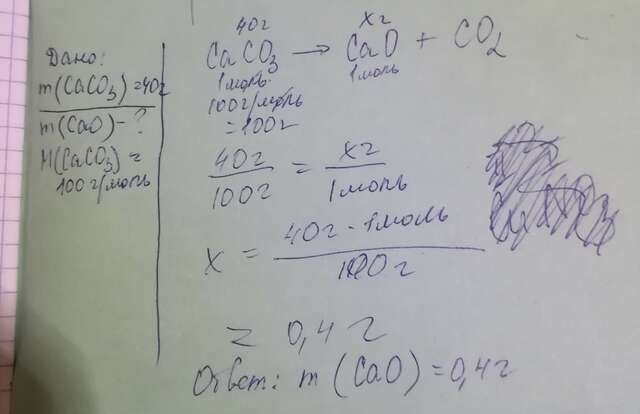 Дано:
m(CaCO3)=40г
m(CaO)-?
M(CaCO3)=
100г/моль
40г xг
CaCO3 → CaO + CO2
1моль 1моль
100г/моль
=100г
40г/100г = xг/1моль
x = 40г · 1моль/100г
= 0,4г
Ответ: m(CaO)=0,4г